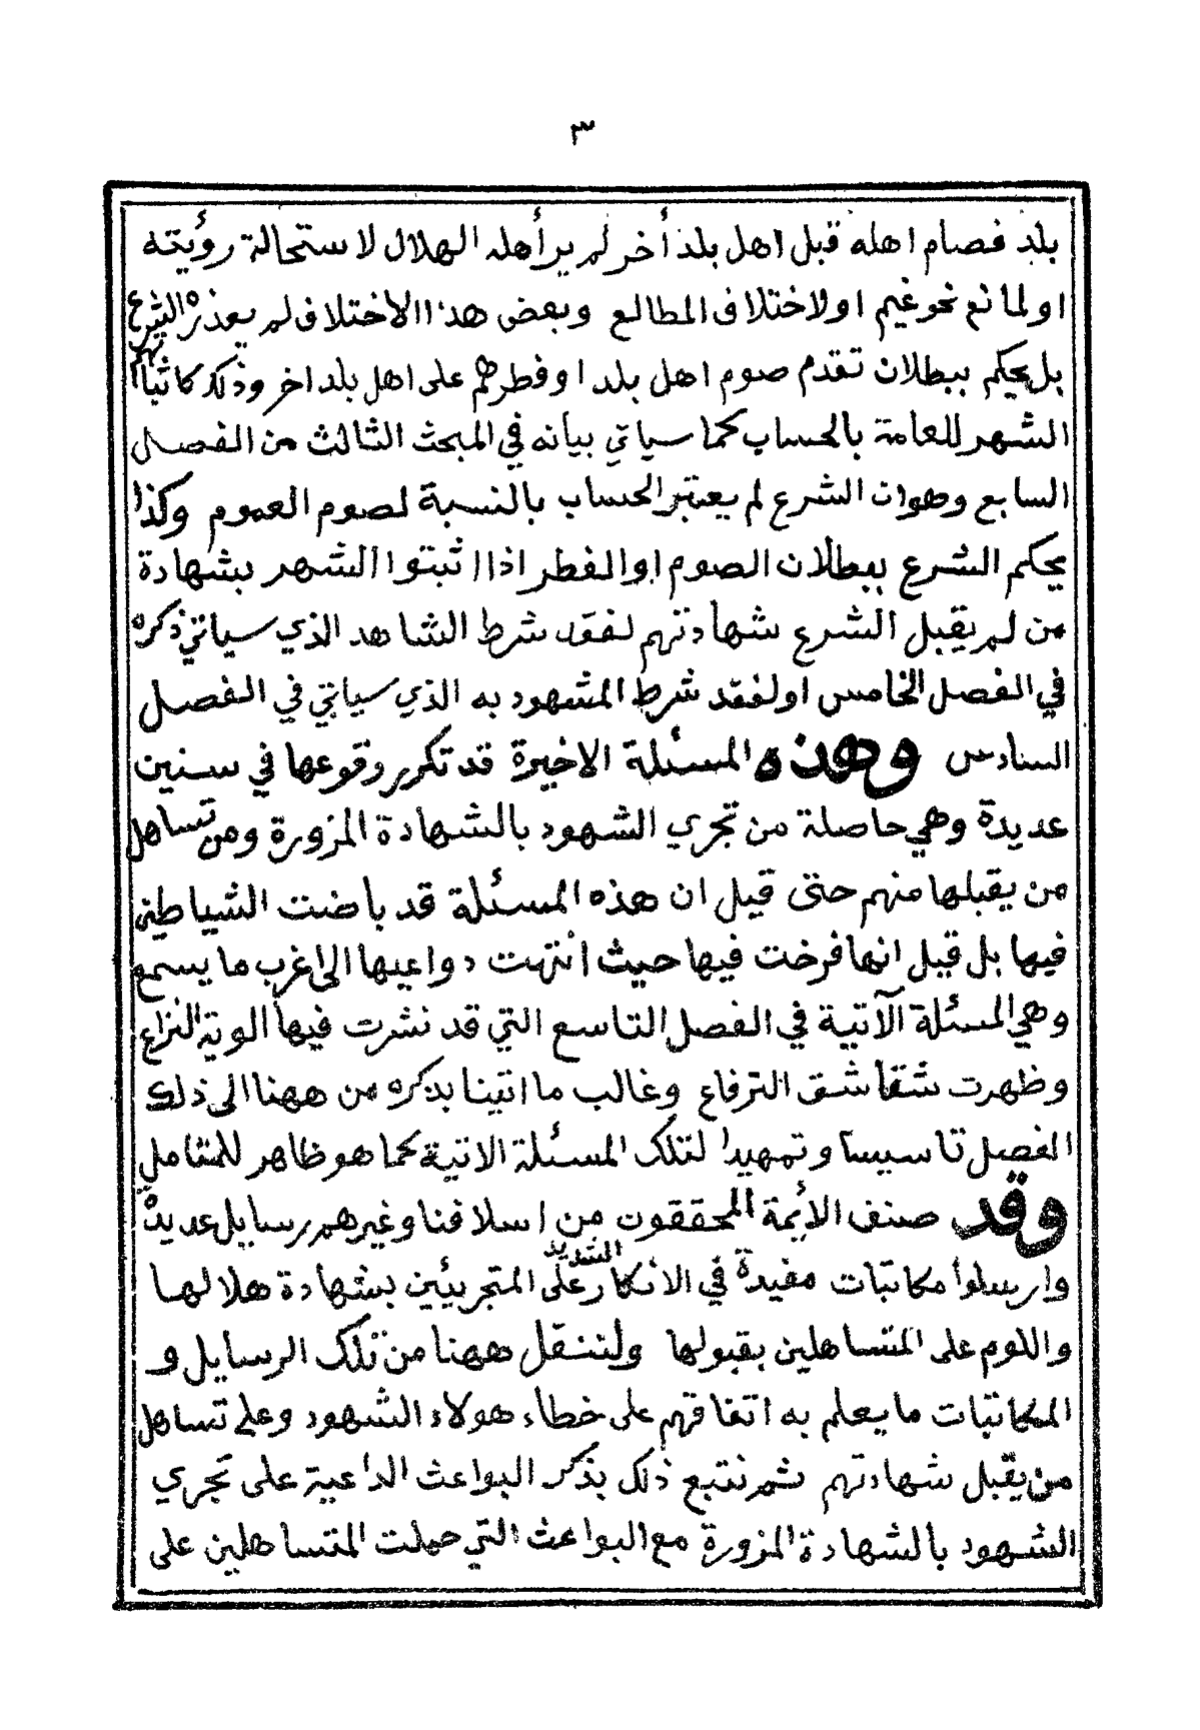 ٣
بلد فصام اهله قبل اهل بلد أخر لم يرأهله الهلال لاستحالة رؤيته
اولمانع نحوغيم اولاختلاف المطالع وبعض هذا الاختلاف لم يعذره الشرع
بل يحكم ببطلان تقدم صوم اهل بلد اوفطرهم على اهل بلد اخر وذلك كاثباتهم
الشهر للعامة بالحساب كما سياتي بيانه في المبحث الثالث من الفصل
السابع وهوان الشرع لم يعتبر الحساب بالنسبة لصوم العموم وكذا
يحكم الشرع ببطلان الصوم اوالفطر اذا اثبتوا الشهر بشهادة
من لم يقبل الشرع شهادتهم لفقد شرط الشاهد الذي سياتي ذكره
في الفصل الخامس اولفقد شرط المشهود به الذي سياتي في الفصل
السادس وهذه المسئلة الاخيرة قد تكرر وقوعها في سنين
عديدة وهي حاصلة من تجري الشهود بالشهادة المزورة ومن تساهل
من يقبلها منهم حتى قيل ان هذه المسئلة قد باضت الشياطين
فيها بل قيل انها فرخت فيها حيث انتهت دواعيها الى اغرب ما يسمع
وهي المسئلة الآتية في الفصل التاسع التي قد نشرت فيها الوية النزاع
وظهرت شقاشق الترفاع وغالب ما اتينا بذكره من ههنا الى ذلك
الفصل تاسيسا وتمهيدا لتلك المسئلة الاتية كما هو ظاهر للمتامل
وقد صنف الأئمة المحققون من اسلافنا وغيرهم رسايل عديدة
وارسلوا مكاتبات مفيدة في الانكار الشديد على المتجريئين بشهادة هلالها
واللوم على المتساهلين بقبولها ولننقل ههنا من تلك الرسايل و
المكاتبات ما يعلم به اتفاقهم على خطاء هولاء الشهود وعلى تساهل
من يقبل شهادتهم ثم نتبع ذلك بذكر البواعث الداعية على تجري
الشهود بالشهادة المزورة مع البواعث التي حملت المتساهلين على